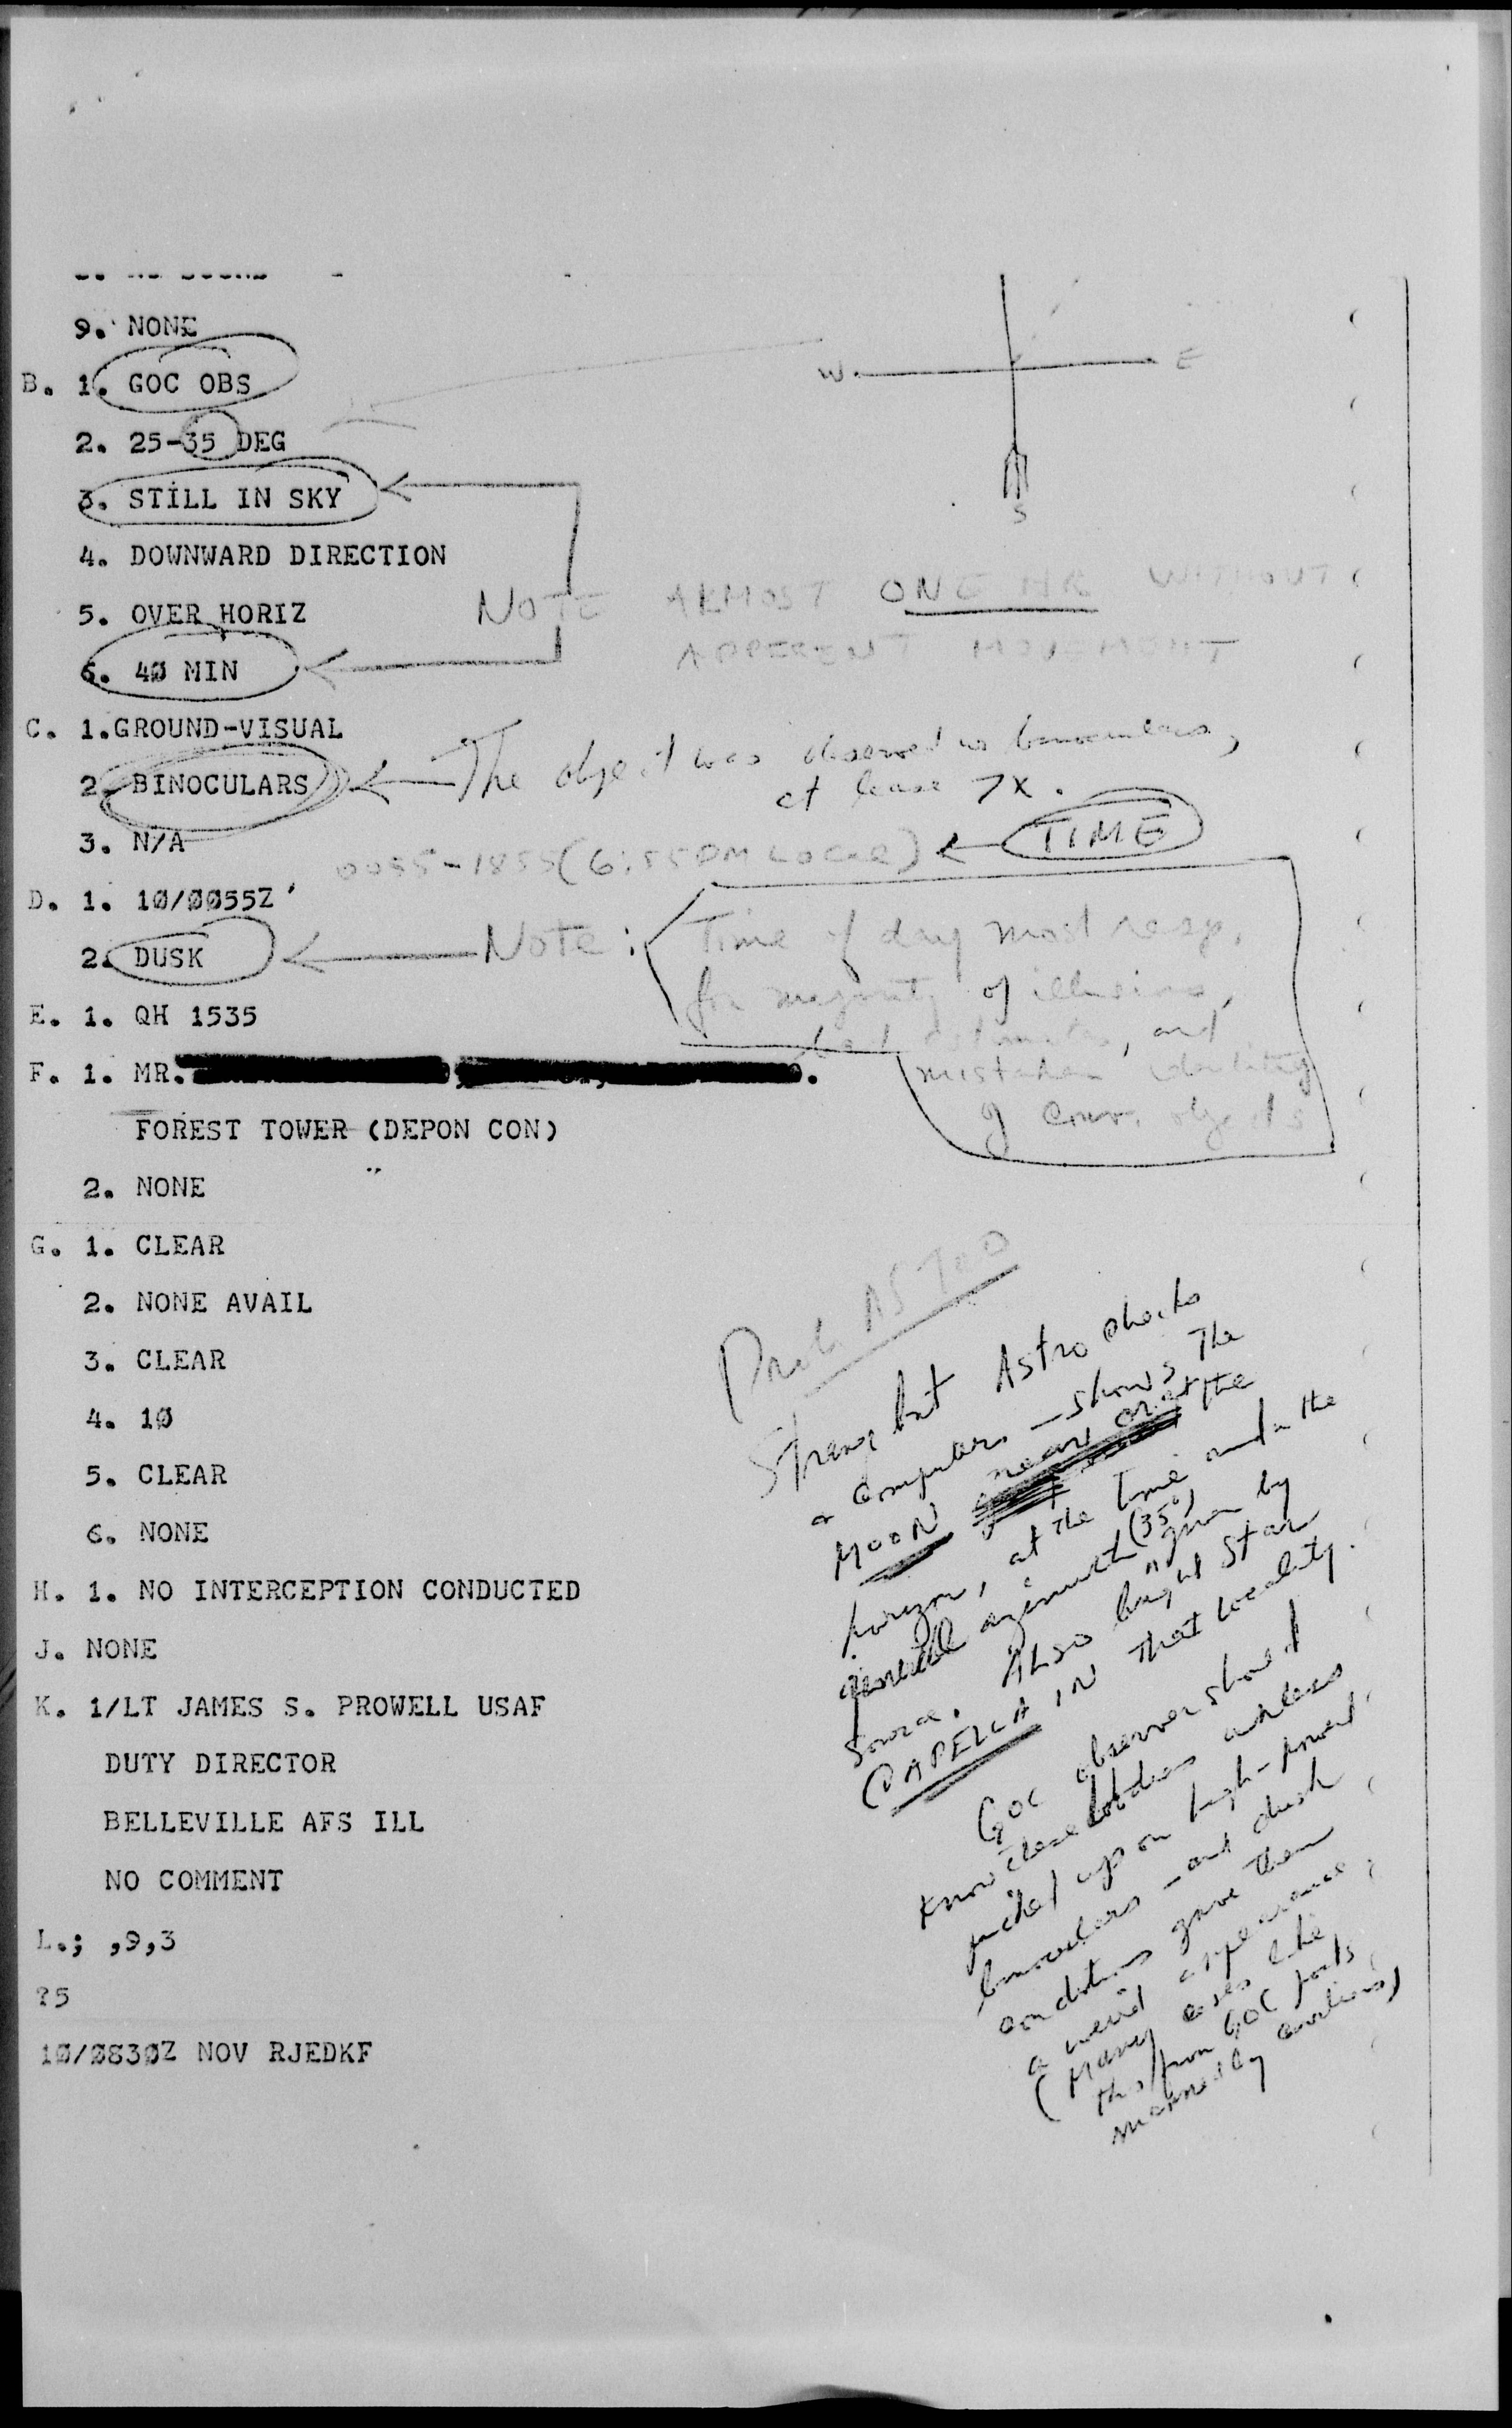 9. NONE
B. 1. GOC OBS
2. 25-35 DEG
3. STILL IN SKY
4. DOWNWARD DIRECTION
5. OVER HORIZ
6. 40 MIN
C. 1.GROUND-VISUAL
2. BINOCULARS
3. N/A
D. 1. 10/0055Z
2. DUSK
E. 1. QH 1535
F. 1. MR.
FOREST TOWER (DEPON CON)
2. NONE
G. 1. CLEAR
2. NONE AVAIL
3. CLEAR
4. 10
5. CLEAR
6. NONE
H. 1. NO INTERCEPTION CONDUCTED
J. NONE
K. 1/LT JAMES S. PROWELL USAF
DUTY DIRECTOR
BELLEVILLE AFS ILL
NO COMMENT
L.; ,9,3
?5
10/0830Z NOV RJEDKF
W E
S
NOTE ALMOST ONE HR WITHOUT
APPERENT MOVEMONT
The object was observed w binoculars,
at lease 7X.
0055-1855 (6:55 PM Local) TIME
Note: Time of day most resp.
for majority of illusions,
bad estimates, and
mistaken identity
of conv. objects
Prob ASTRO
Strang but Astro checks
& computers - shows the
MOON near or at the
horizon, at the time and in the
azimuth (35°) given by
source. Also bright star
CAPELLA IN that locality.
GOC observer should
know these bodies unless
picked up on high-powered
binoculars - and dusk
conditions gave them
a weird appearance
(Many cases like
this from GOC posts
manned by civilians)